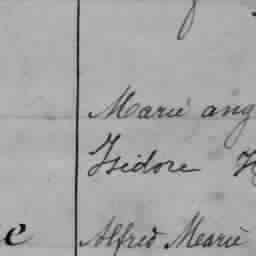 Marie ang
Isidore H
Alfred Mearie